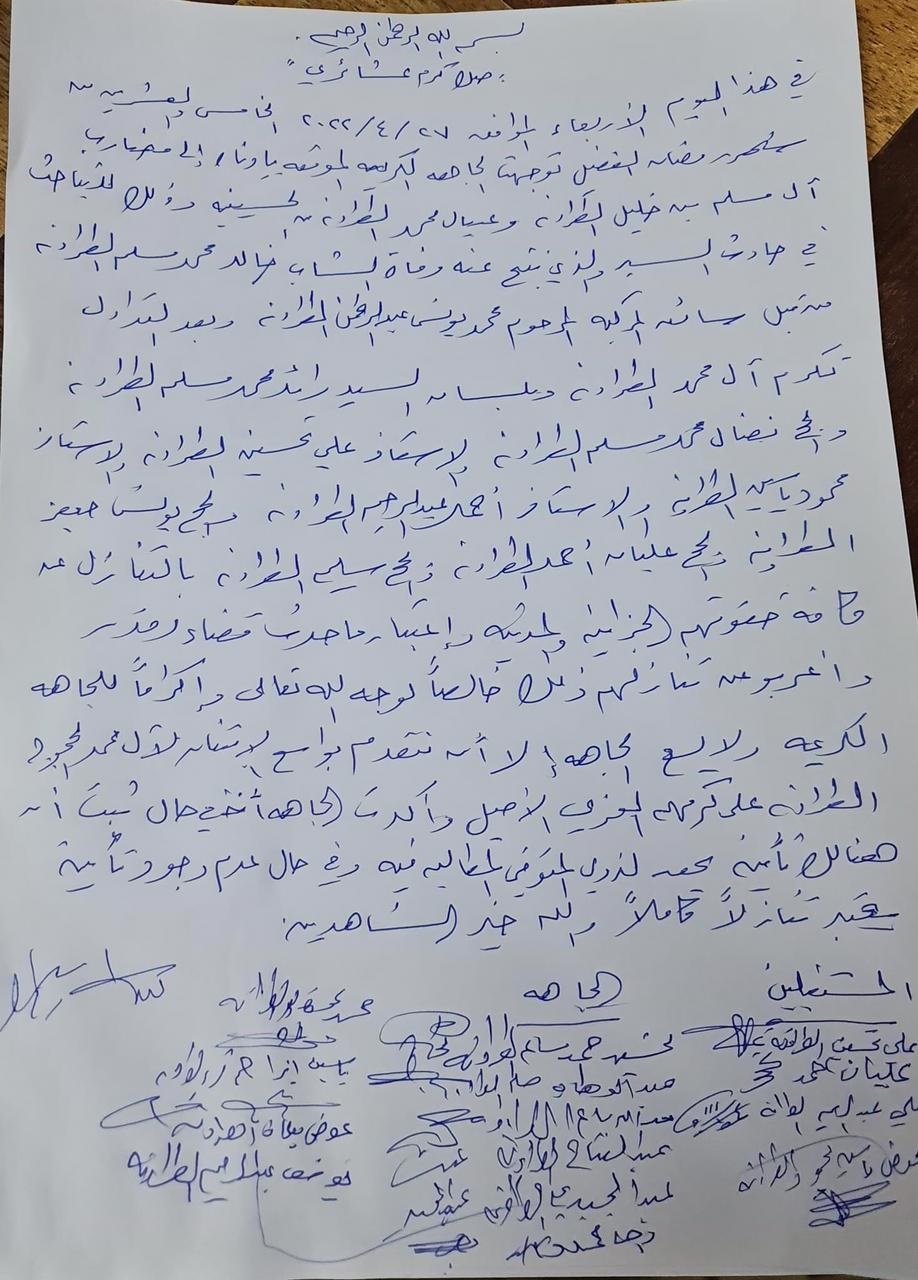 بسم الله الرحمن الرحيم
"صك كرم عشائري"
في هذا اليوم الأربعاء الموافق ٢٠٢٢/٤/٢٧ الخامس والعشرين من
شهر رمضان الفضيل توجهت الجاهه الكريمه الموقعه بادناه إلى مضارب
آل مسلم بن خليل الطراونه وعيال محمد الطراونه من الحسينيه وذلك للتباحث
في حادث السير والذي نتج عنه وفاة الشاب خالد محمد مسلم الطراونه
من قبل سائق المركبه المرحوم محمد يونس عبدالرحمن الطراونه وبعد التداول
تكرم آل محمد الطراونه وبلسان السيد رائد محمد مسلم الطراونه
والحج نضال محمد مسلم الطراونه والاستاذ علي تحسين الطراونه والاستاذ
محمود ياسين الطراونه والاستاذ أحمد عبدالرحيم الطراونه والحج يونس جعفر
الطراونه والحج عليان أحمد الطراونه والحج سليم الطراونه بالتنازل عن
كافة حقوقهم الجزائيه والمدنيه وإعتبار ما حدث قضاء وقدر
واعربوا عن تنازلهم ذلك خالصاً لوجه الله تعالى وإكراماً للجاهه
الكريمه ولا يسع الجاهه إلا أن نتقدم بواسع الإمتنان لآل محمد
الطراونه على كرمهم العربي الأصيل وأكدت الجاهه في حال ثبت أن
هنالك تأمين يحق لذوي المتوفي المطالبه فيه وفي حال عدم وجود تأمين
يعتبر تنازلاً كاملاً والله خير الشاهدين
المستقبلين
علي تحسين الطراونة
عليان أحمد
علي عبد الطراونه
ياسين محمود الطراونه
الجاهه
حمد سالم الطراونه
عبدالوهاب
عبدالفتاح الطراونه
عبدالمجيد الطراونه
محمد الطراونه
ياسين ابراهيم الطراونه
عوض الطراونه
يوسف عبدالرحيم الطراونه